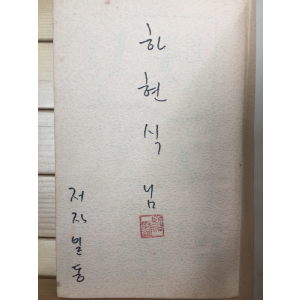 하현식 님
저자 빌동